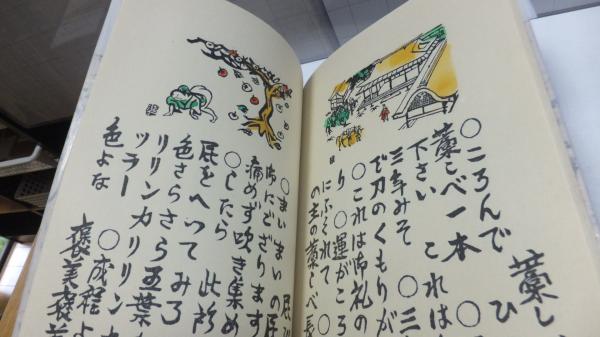 藁しひ
○ころんで
藁しべ一本 これは
下さい
三年みそ ○三
で刀のくもりが
○これは御礼の
り ○運がころ
にふくれて ○
の主の藁しべ長
○まいまいの屁
御にござります
痛めず吹き集め
○したら 此所
屁をへってみろ
色さらさら五葉
リリンカリリン
ツラー ○成程よ
色よな 褒美褒美